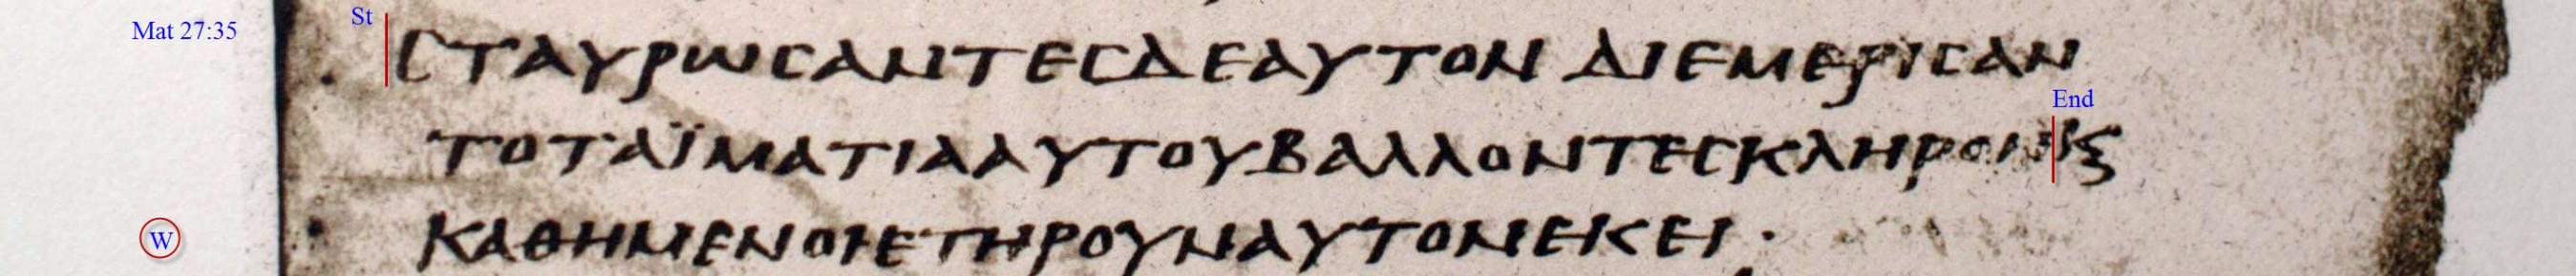 St
Mat 27:35
ϹΤΑΥΡΩϹΑΝΤΕϹΔΕΑΥΤΟΝ ΔΙΕΜΕΡΙϹΑΝ
End
ΤΟΤΑΪΜΑΤΙΑΑΥΤΟΥΒΑΛΛΟΝΤΕϹΚΛΗΡΟΝΚϛ
W
ΚΑΘΗΜΕΝΟΙΕΤΗΡΟΥΝΑΥΤΟΝΕΚΕΙ·